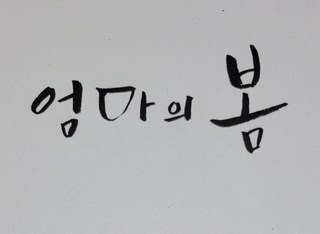 엄마의 봄